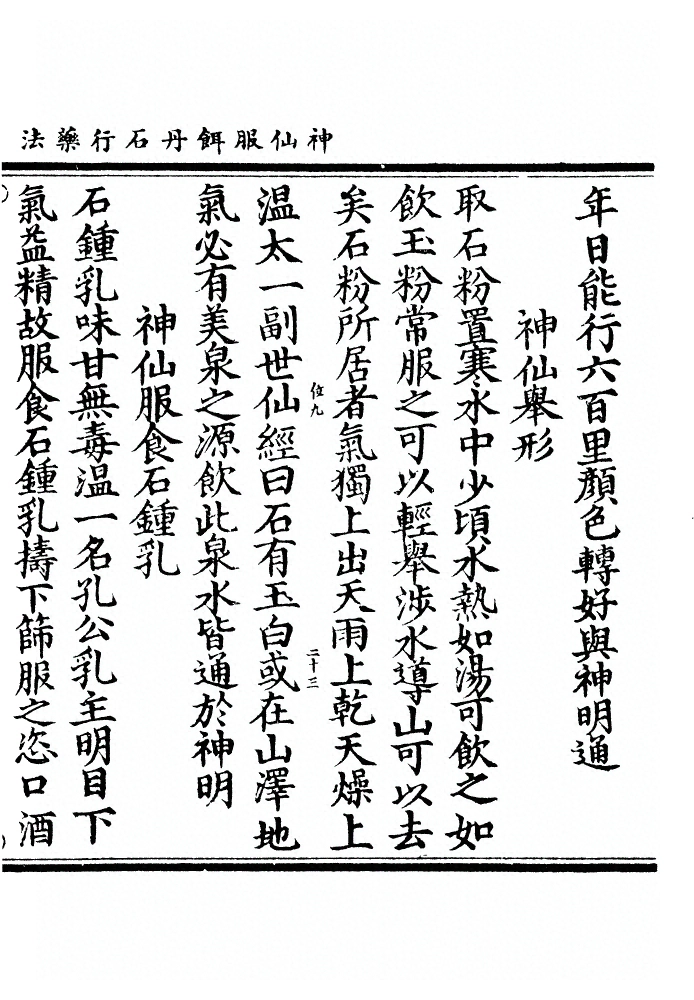 神仙服餌丹石行藥法
年日能行六百里顏色轉好與神明通
神仙舉形
取石粉置寒水中少頃水熱如湯可飲之如
飲玉粉常服之可以輕舉涉水導山可以去
矣石粉所居者氣獨上出天雨上乾天燥上
位九
二十三
温太一副世仙經曰石有玉白或在山澤地
氣必有美泉之源飲此泉水皆通於神明
神仙服食石鍾乳
石鍾乳味甘無毒温一名孔公乳主明目下
氣益精故服食石鍾乳擣下篩服之恣口酒